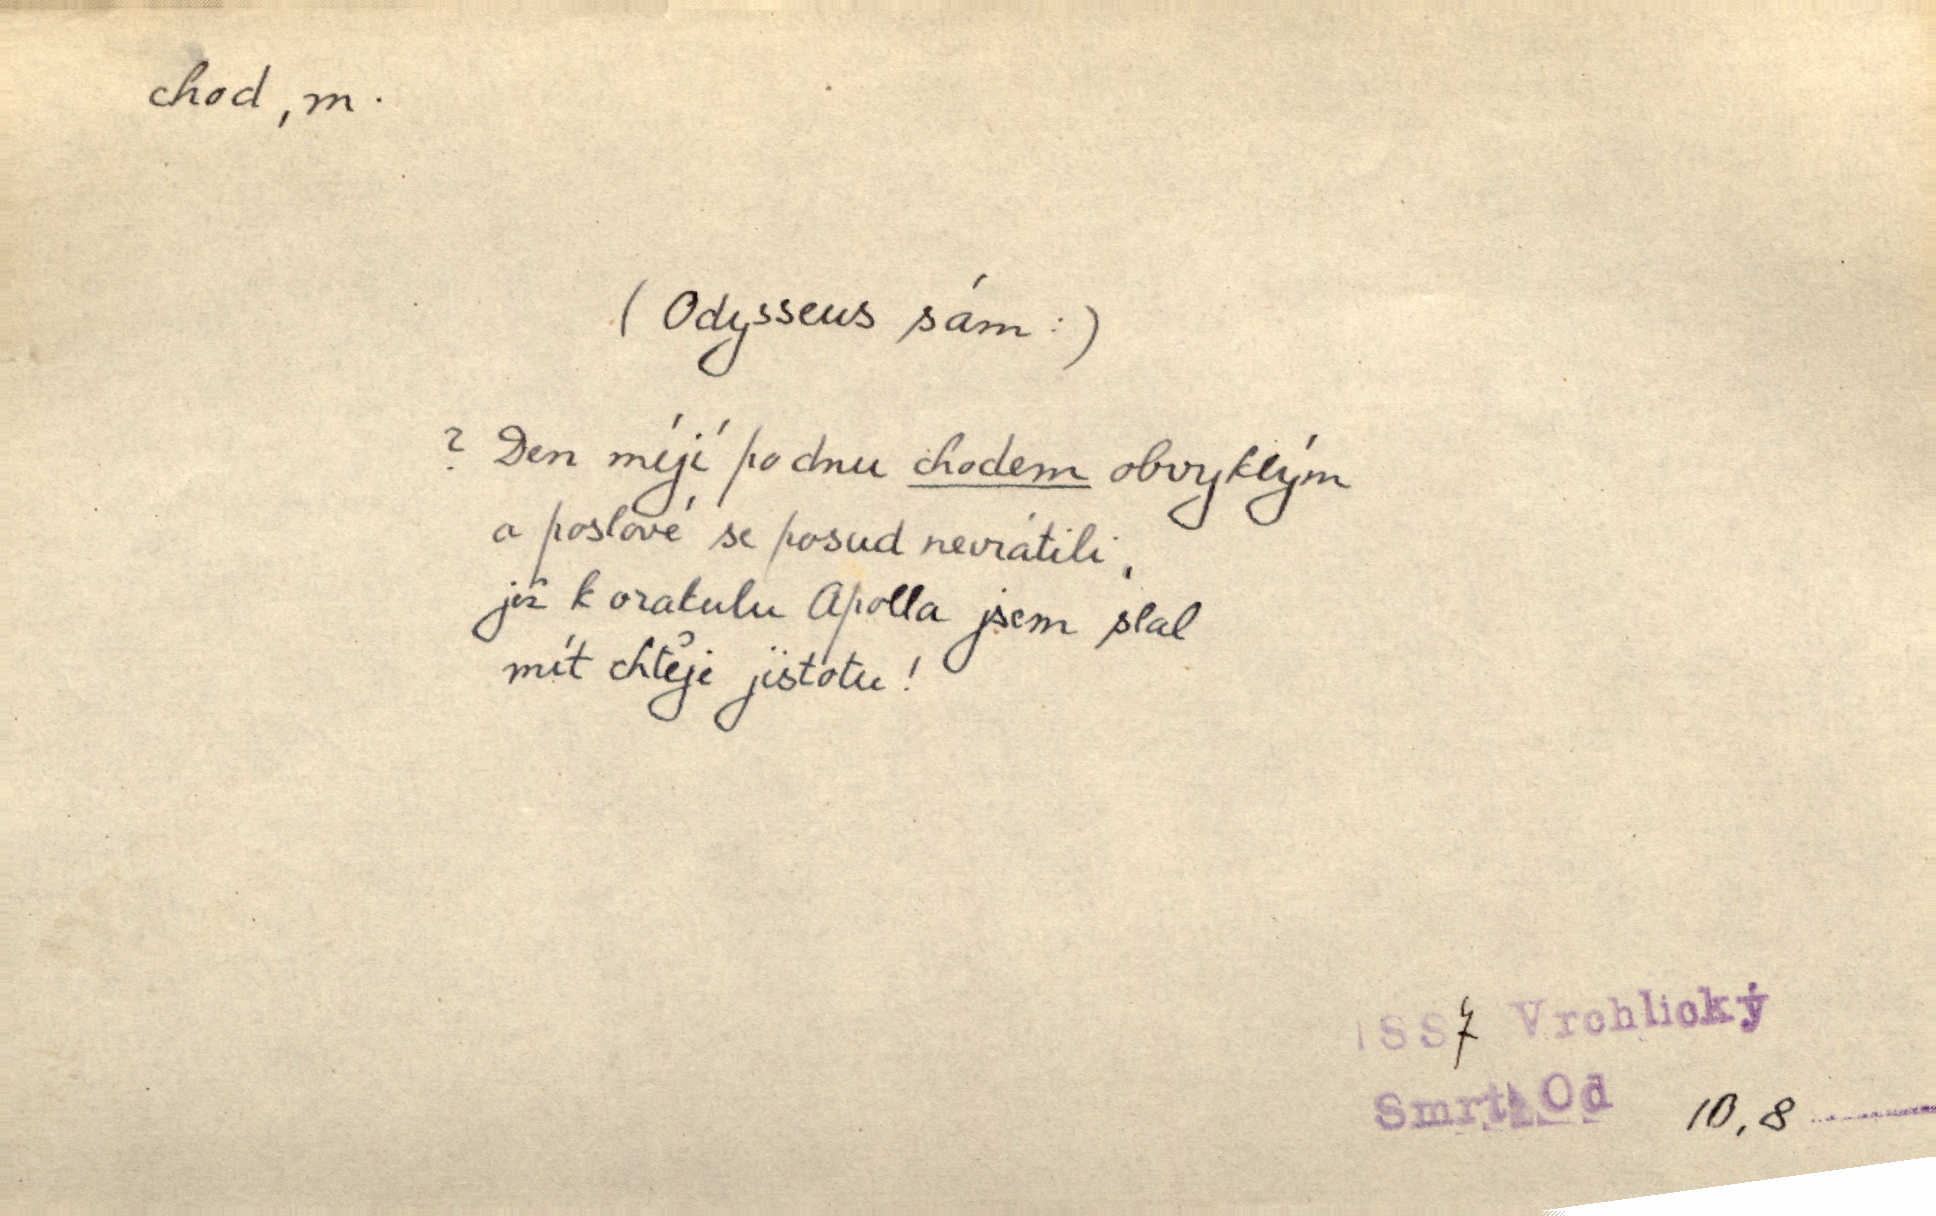 chod, m.
(Odysseus sám:)
? Den míjí po dnu chodem obvyklým
a poslové se posud nevrátili,
jež k orakulu Apolla jsem slal
mít chtěje jistotu!
1887 Vrchlický
Smrt Od 10,8